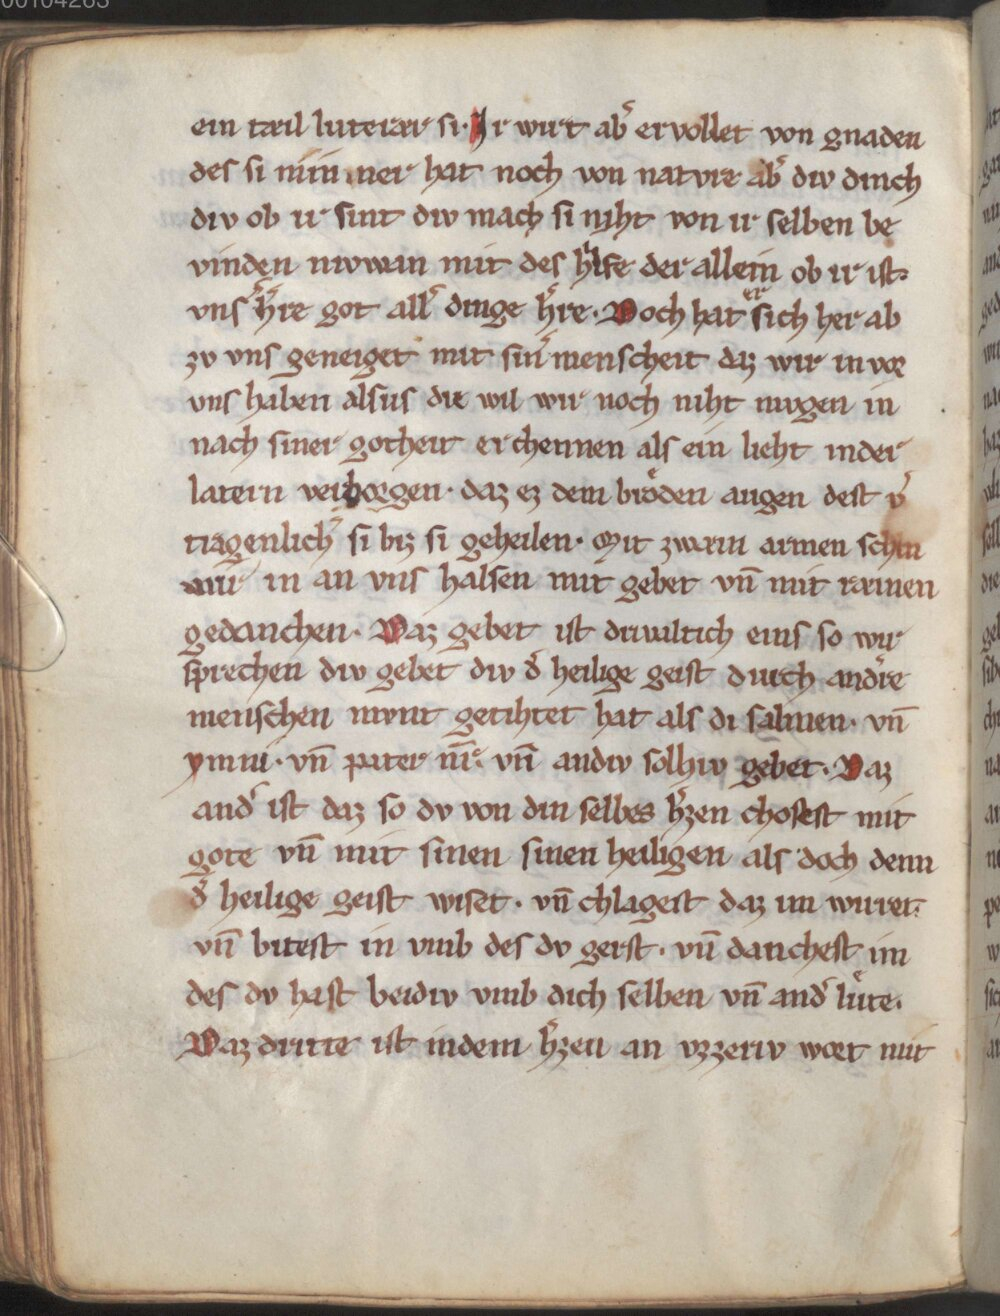 00104263
ein tæil luterær si. Ir wirt abˀ ervollet von gnaden
des si nim̄mer hat noch von natvre abˀ div dinch
div ob ir sint div mach si niht von ir selben be
vinden nivwan mit des hilfe der allein ob ir ist.
vns hˀre got allˀ dinge hˀre. Doch hat er sich her ab
zv vns geneiget mit sinˀ menscheit daz wir in vor
vns haben alsus die wil wir noch niht mvgen in
nach siner gotheit erchennen als ein lieht in der
latern verborgen. daz ez dem brôden augen dest vˀ
tragenlichˀ si biz si geheilen. Mit zwain armen schvln
wir in an vns halsen mit gebet vn̄ mit ræinen
gedanchen. Daz gebet ist drivaltich eins so wir
sprechen div gebet div dˀ heilige geist durch andˀre
menschen mvnt getihtet hat als di salmen. vn̄
ymni. vn̄ pater nr̄. vn̄ andiv solhiv gebet. Daz
andˀ ist daz so dv von din selbes hˀzen chosest mit
gote vn̄ mit sinen sinen heiligen als doch denn
dˀ heilige geist wiset. vn̄ chlagest daz im wirret.
vn̄ bitest in vmb des dv gerst. vn̄ danchest im
des dv hast beidiv vmb dich selben vn̄ andˀ lûte.
Daz dritte ist in dem hˀzen an vzzeriv wort mit